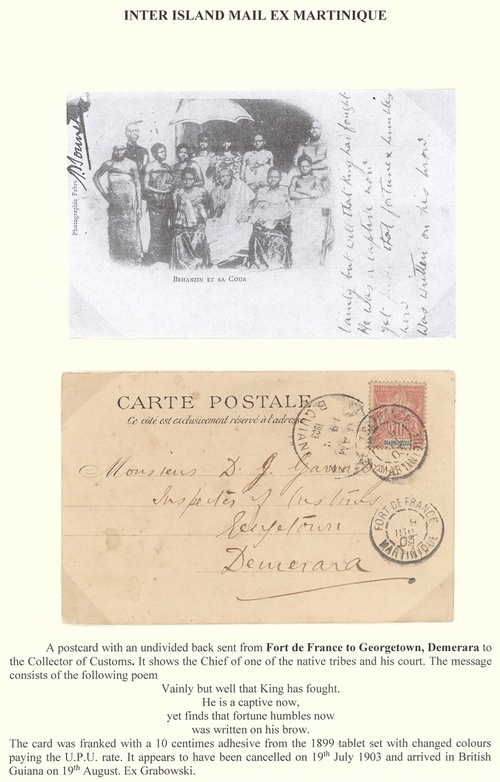 INTER ISLAND MAIL EX MARTINIQUE
Photographie Fabre
BEHANZIN ET SA COUR
Vainly but well that King has fought
He was a captive now
yet finds that fortune humbles
now
was written on his brow
CARTE POSTALE
Ce côté est exclusivement réservé à l'adresse
Monsieur D. G.
Inspector of Customs
Georgetown
Demerara
MARTINIQUE
FORT DE FRANCE
03
MARTINIQUE
A postcard with an undivided back sent from Fort de France to Georgetown, Demerara to
the Collector of Customs. It shows the Chief of one of the native tribes and his court. The message
consists of the following poem
Vainly but well that King has fought.
He is a captive now,
yet finds that fortune humbles now
was written on his brow.
The card was franked with a 10 centimes adhesive from the 1899 tablet set with changed colours
paying the U.P.U. rate. It appears to have been cancelled on 19th July 1903 and arrived in British
Guiana on 19th August. Ex Grabowski.